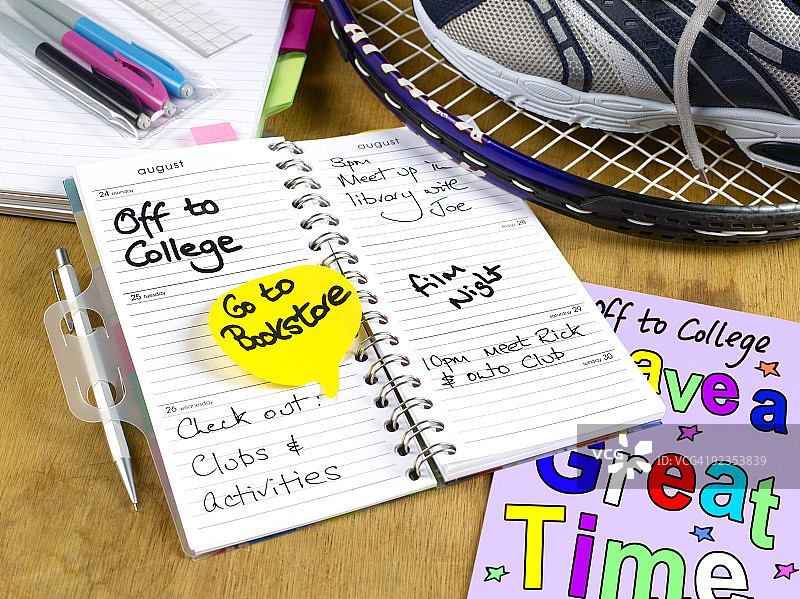 august
24 monday
Off to
College
25 tuesday
Go to
Bookstore
26 wednesday
Check out:
Clubs &
Activities
august
3pm
Meet up in
library with
Joe
28
film
Night
saturday 29
10pm meet Rick
& onto Club
sunday 30
Off to College
Have a
Great
Time
VCG
ID: VCG41N92353839